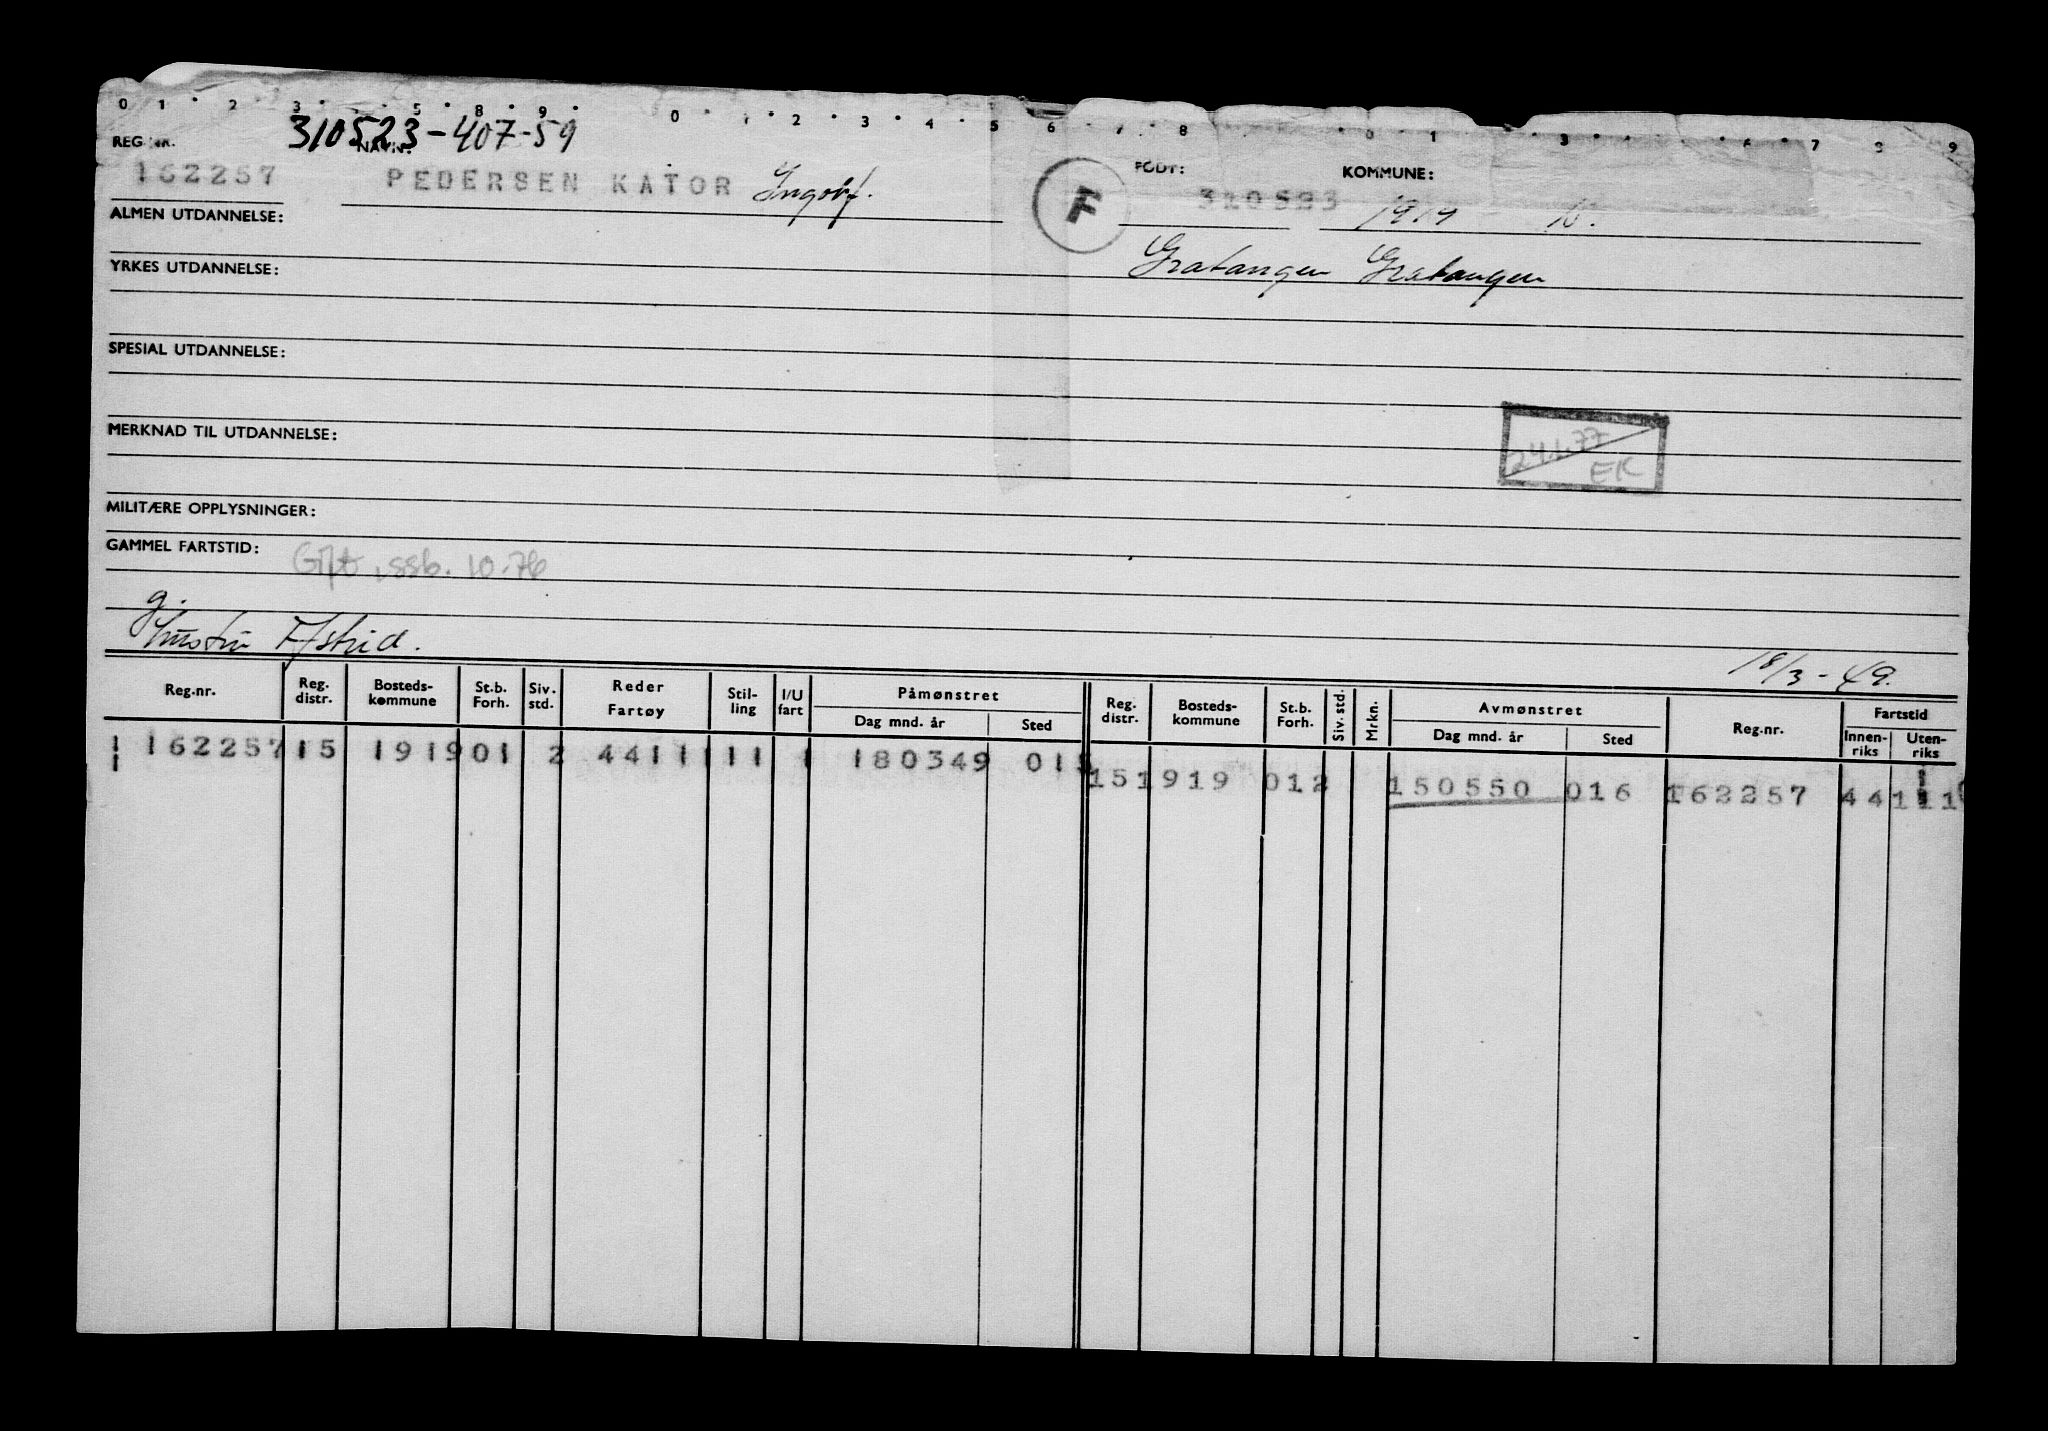 0 1 2 3 5 8 9 0 1 2 3 4 5 6 7 8 0 1 3 4 6 7 8 9
310523-407-59
REG.NR. NAVN: FØDT: KOMMUNE:
162257 PEDERSEN KATOR Ingolf. F 310523 1919 N.
ALMEN UTDANNELSE:
Gratangen Gratangen
YRKES UTDANNELSE:
SPESIAL UTDANNELSE:
MERKNAD TIL UTDANNELSE:
24.1.77
EK
MILITÆRE OPPLYSNINGER:
GAMMEL FARTSTID:
Gift, ssb. 10.76
g.
hustru Astrid.
18/3-49.
Reg.nr. Reg. distr. Bosteds-kommune St.b. Forh. Siv. std. Reder Fartøy Stil-ling I/U fart Påmønstret Dag mnd. år Sted Reg. distr. Bosteds-kommune St.b. Forh. Siv. std. Mrkn. Avmønstret Dag mnd. år Sted Reg.nr. Fartstid Innen-riks Uten-riks
162257 15 1919 01 2 4411 11 1 180349 015
15 1919 012 150550 016 162257 44111